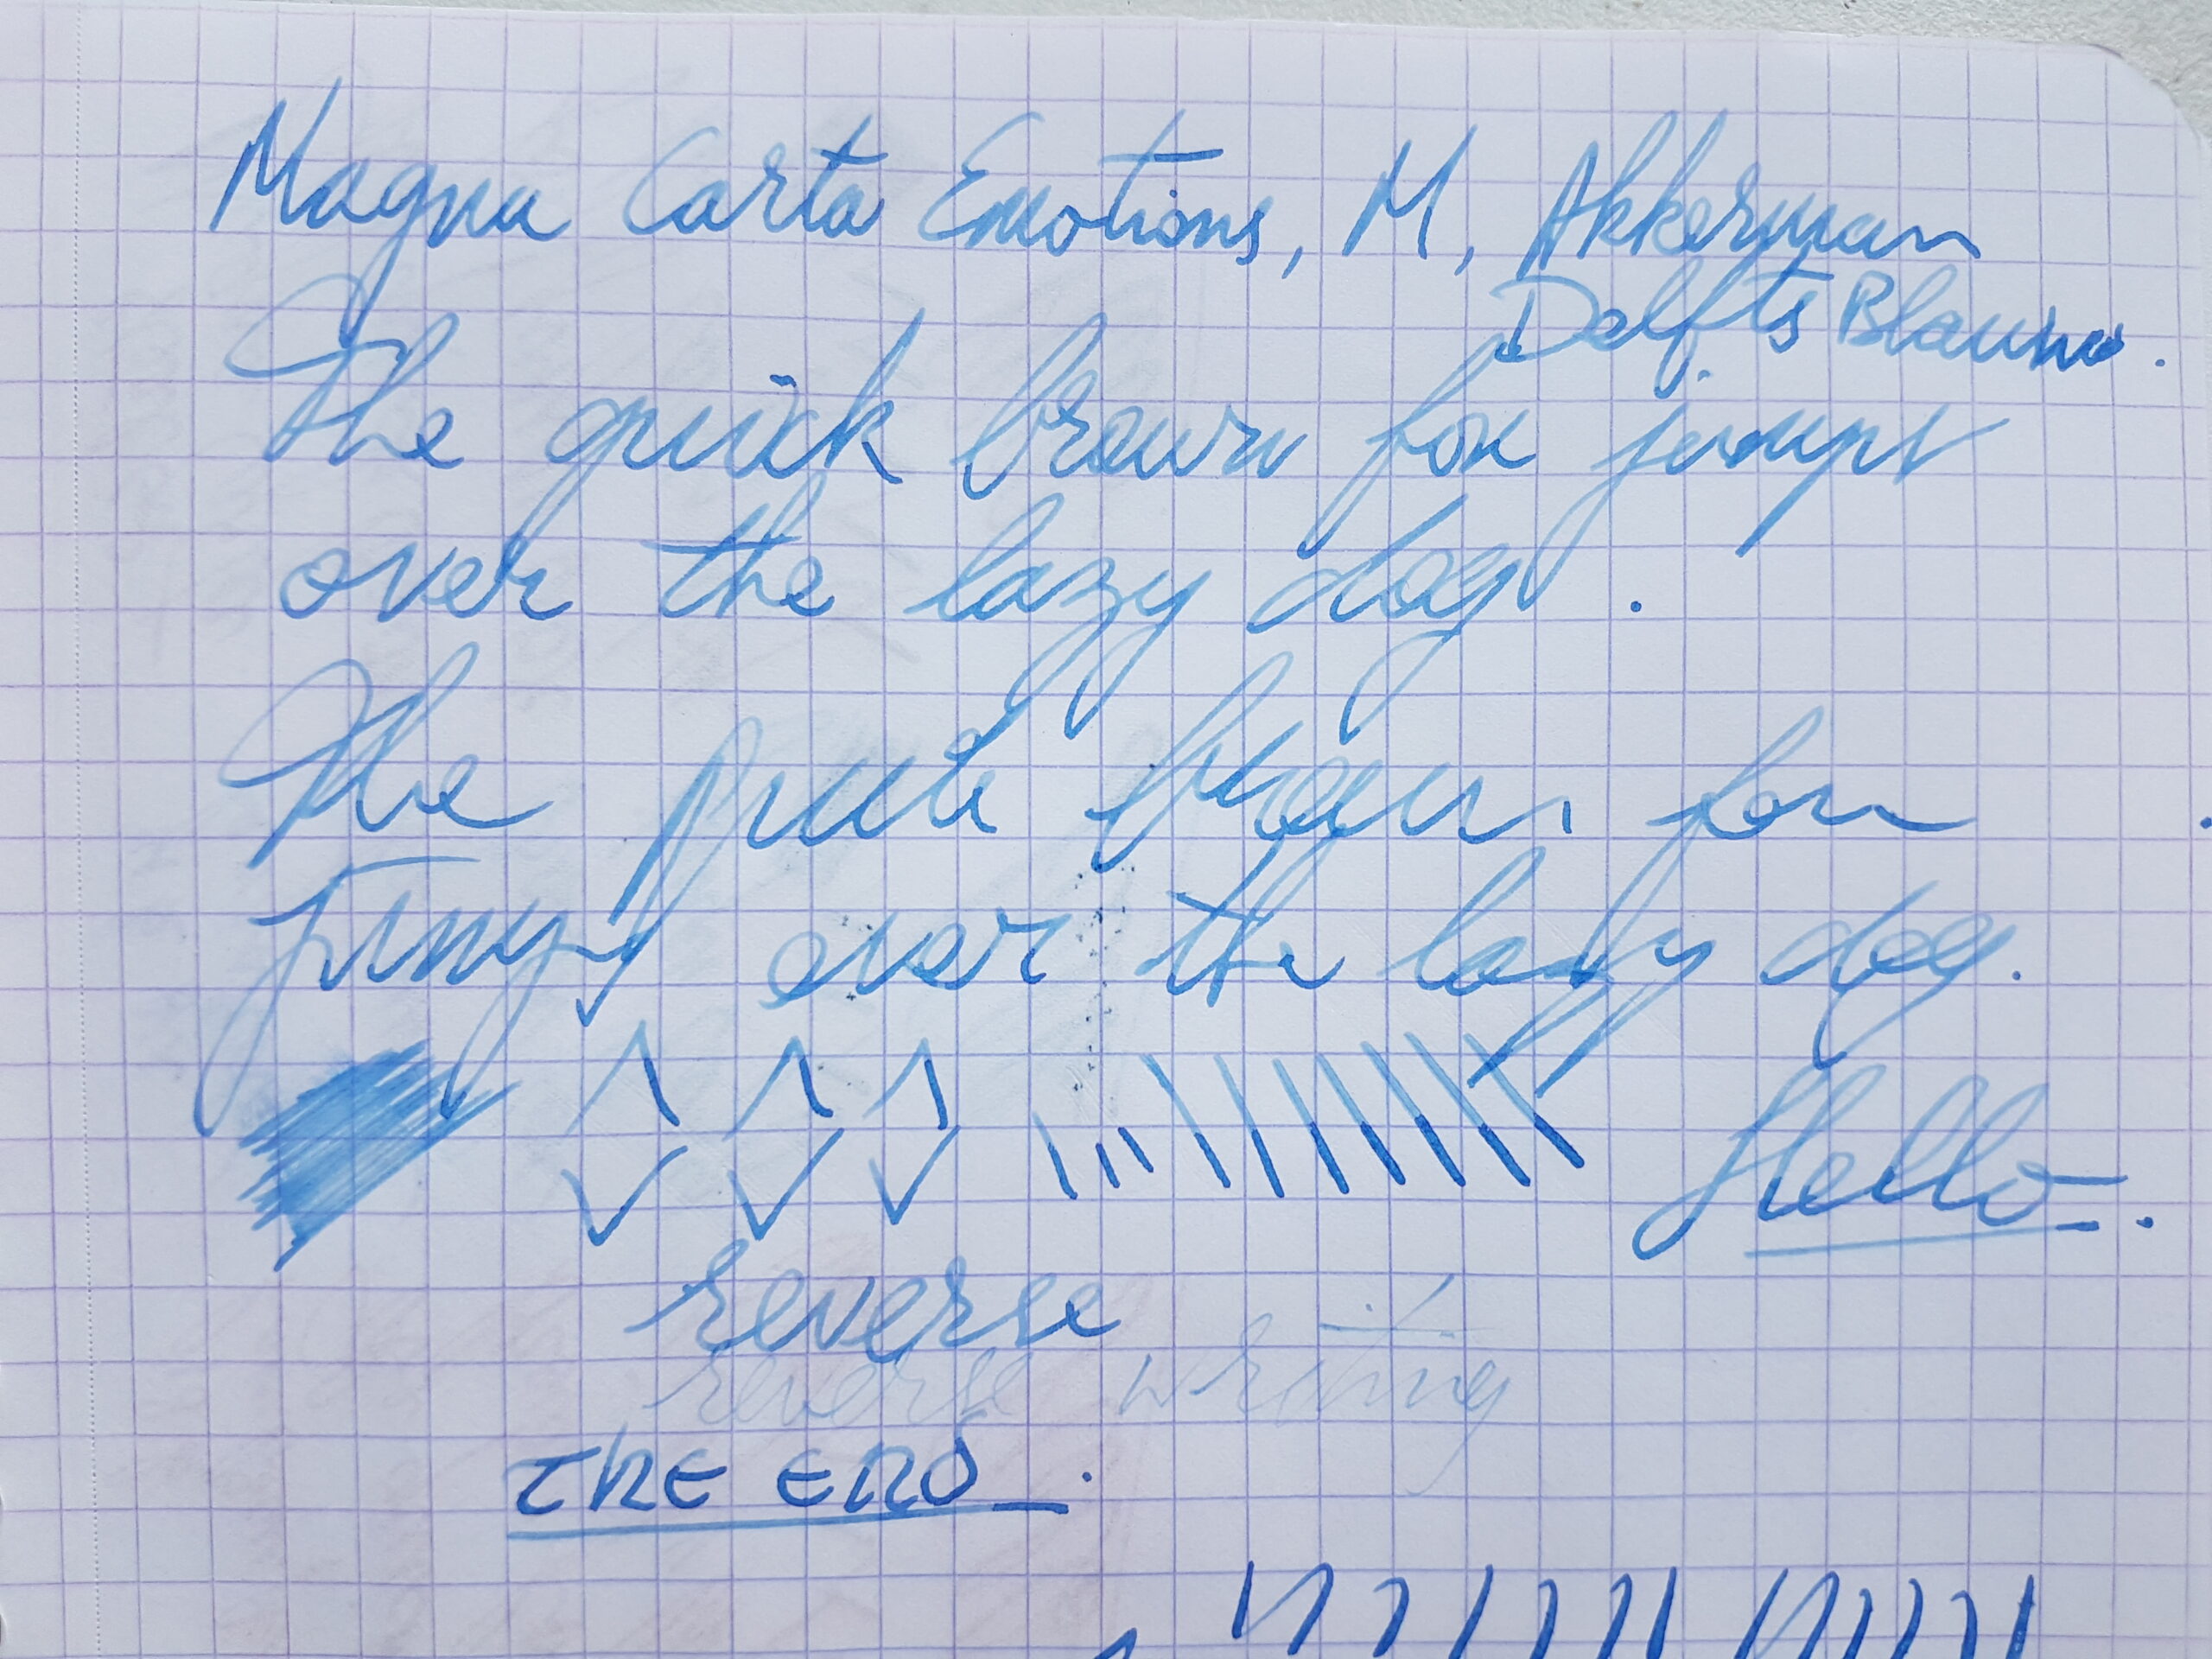 Magna Carta Emotions, M, Akkerman
Delfts Blauw.
The quick brown fox jumps
over the lazy dog.
The quick brown fox
jumps over the lazy dog.
Hello.
reverse
reverse writing
THE END.